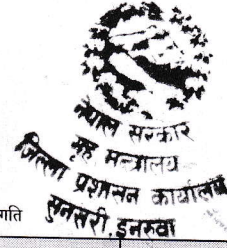 नेपाल सरकार
गृह मन्त्रालय
जिल्ला प्रशासन कार्यालय
सुनसरी, इनरुवा
गति